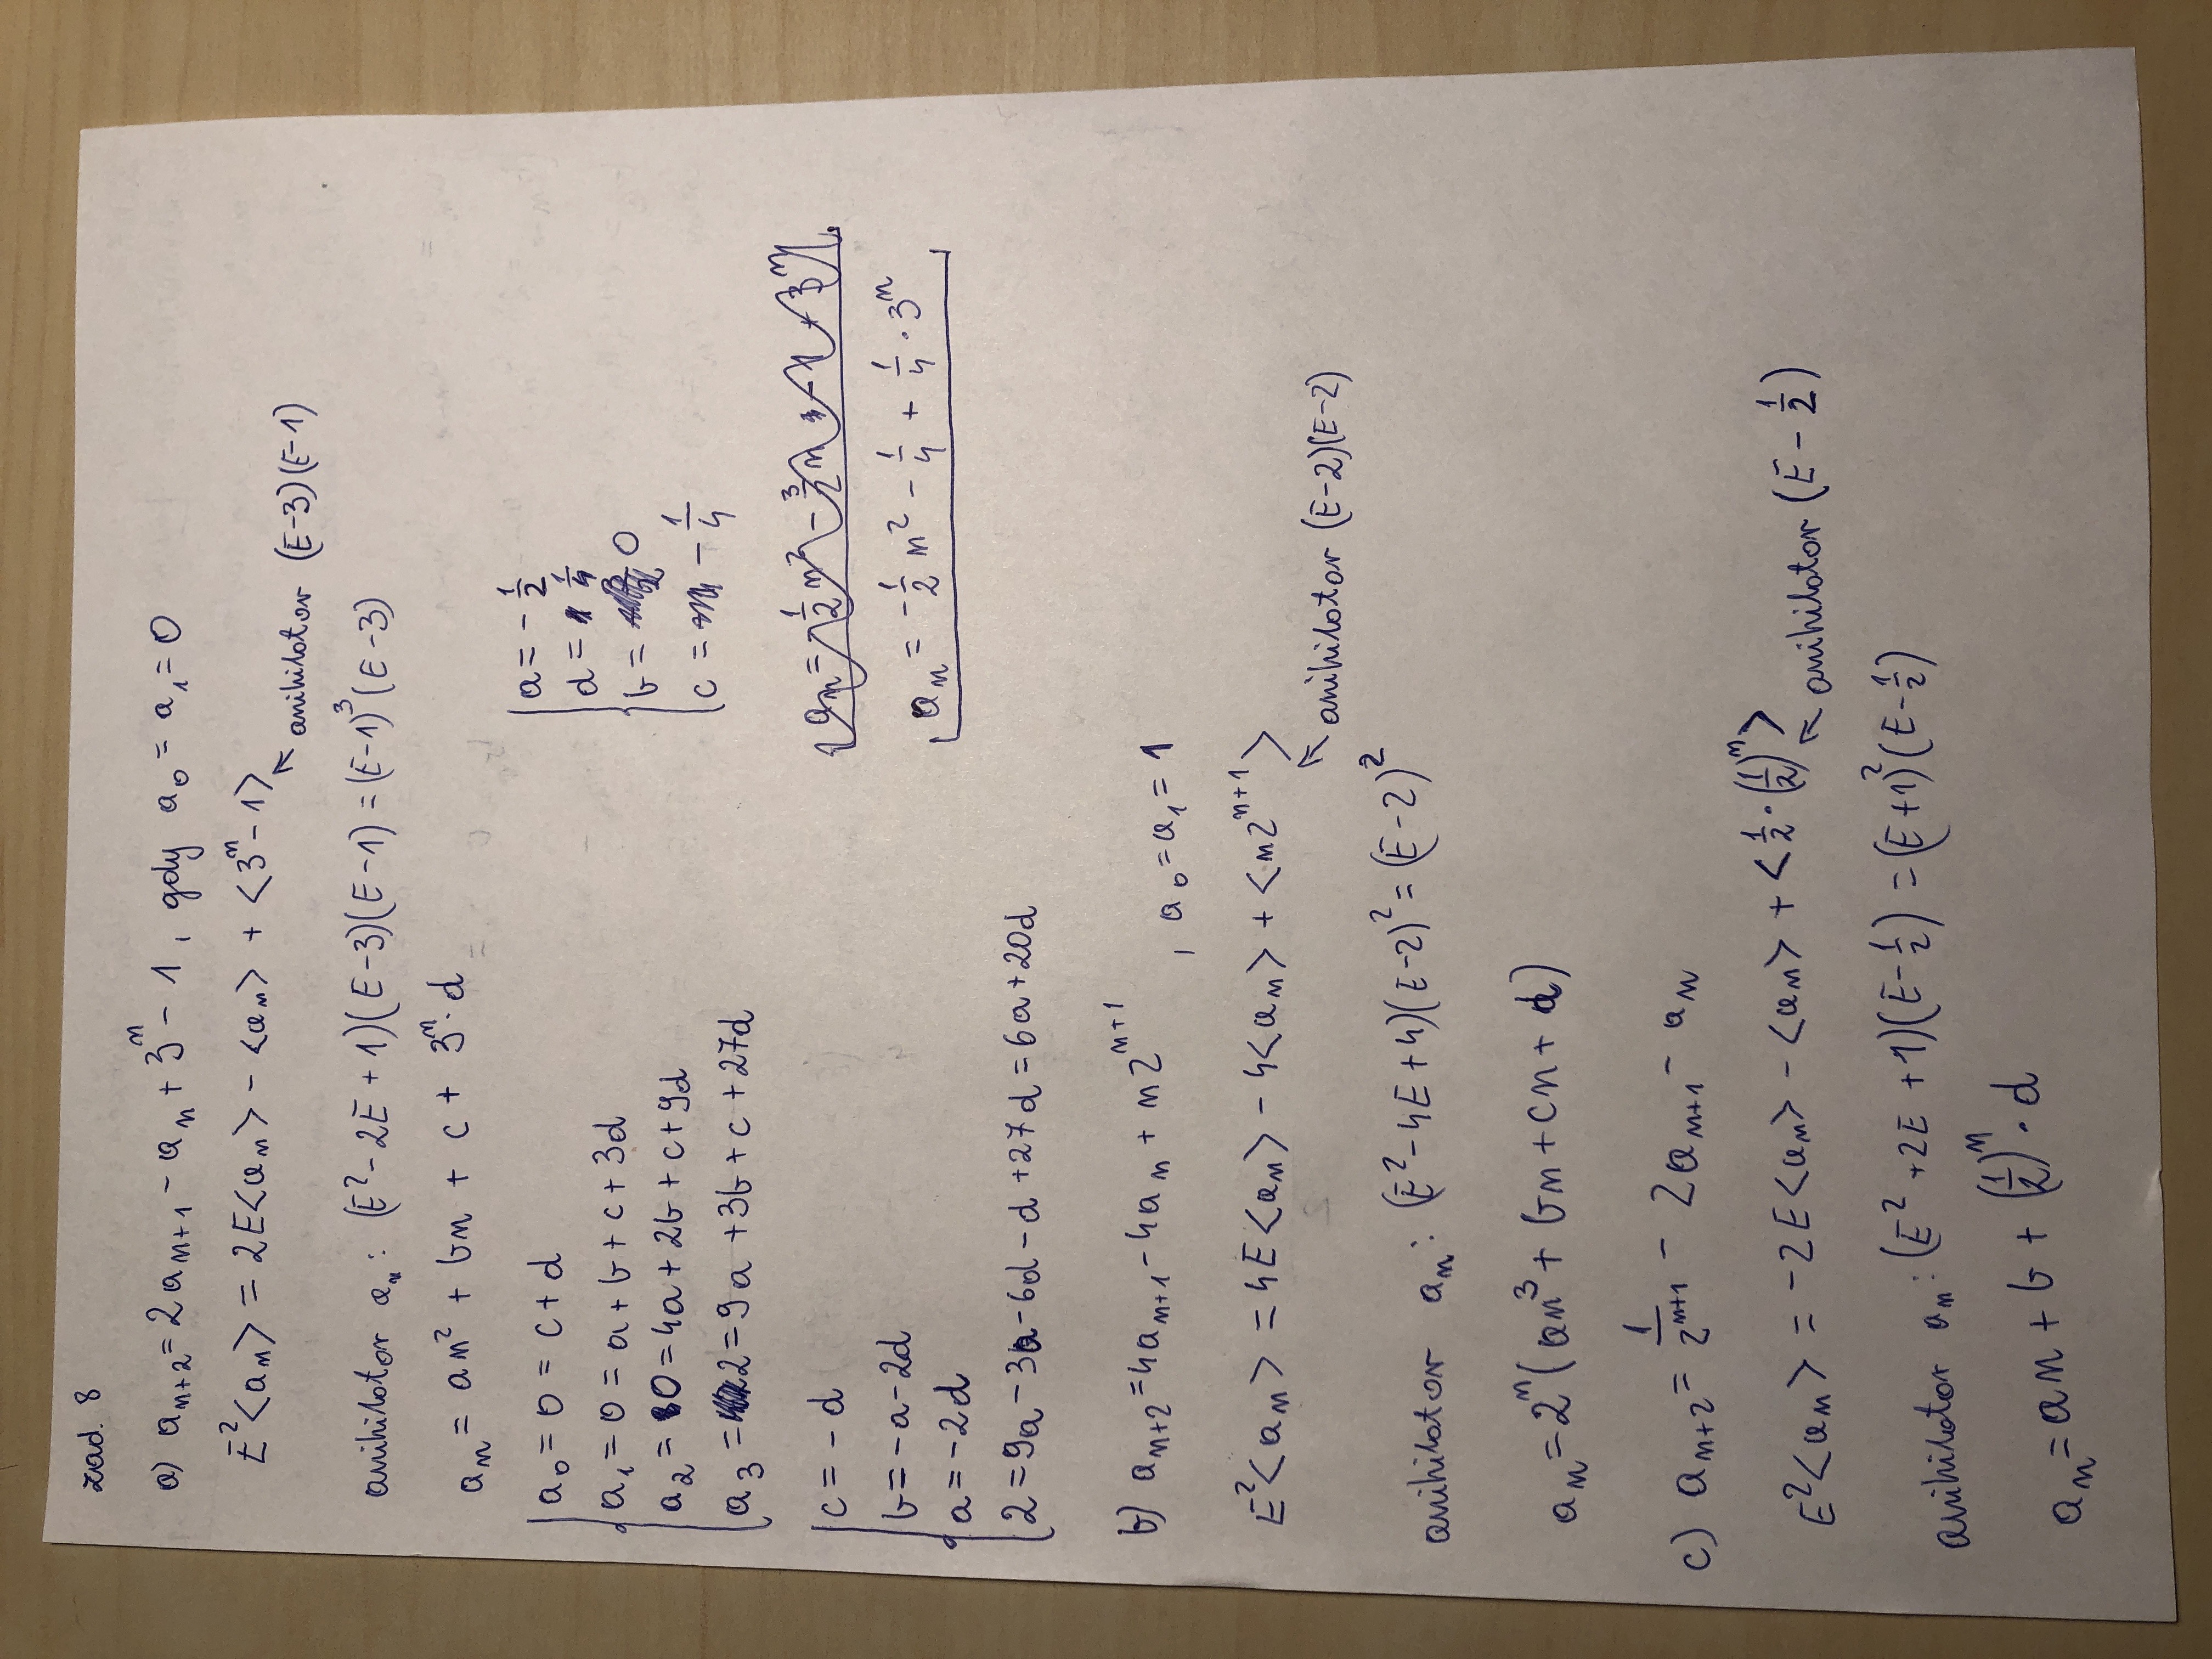 zad. 8
a) aₙ₊₂ = 2aₙ₊₁ - aₙ + 3ⁿ - 1, gdy a₀ = a₁ = 0
E²<aₙ> = 2E<aₙ> - <aₙ> + <3ⁿ - 1>
↖ anihilator (E-3)(E-1)
anihilator aₙ: (E² - 2E + 1)(E-3)(E-1) = (E-1)³(E-3)
aₙ = an² + bn + c + 3ⁿ · d
a₀ = 0 = c + d
a₁ = 0 = a + b + c + 3d
a₂ = 0 = 4a + 2b + c + 9d
a₃ = 2 = 9a + 3b + c + 27d
c = -d
b = -a - 2d
a = -2d
2 = 9a - 3a - 6d - d + 27d = 6a + 20d
a = -1/2
d = 1/4
b = 0
c = -1/4
aₙ = -1/2 n² - 3/2 n - 1 + 3ⁿ
aₙ = -1/2 n² - 1/4 + 1/4 · 3ⁿ
b) aₙ₊₂ = 4aₙ₊₁ - 4aₙ + n2ⁿ⁺¹, a₀ = a₁ = 1
E²<aₙ> = 4E<aₙ> - 4<aₙ> + <n2ⁿ⁺¹>
↖ anihilator (E-2)(E-2)
anihilator aₙ: (E² - 4E + 4)(E-2)² = (E-2)²
aₙ = 2ⁿ(an³ + bn + cn + d)
c) aₙ₊₂ = 1/2ⁿ⁺¹ - 2aₙ₊₁ - aₙ
E²<aₙ> = -2E<aₙ> - <aₙ> + <1/2 · (1/2)ⁿ>
↖ anihilator (E - 1/2)
anihilator aₙ: (E² + 2E + 1)(E - 1/2) = (E+1)²(E - 1/2)
aₙ = an + b + (1/2)ⁿ · d